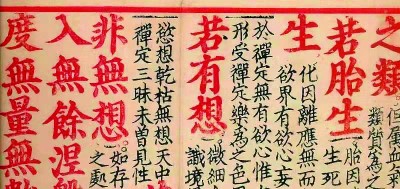 之類
但屬血
類質爲
若胎生
胎因
生死
生
化因離應無而
欲界有欲心妄
於禪定無有欲心惟
形受禪定樂爲之色
若有想
微細
識境
慾想乾枯無想天中
禪定三昧未曾見性
非無想
如存
之處
入無餘涅
度無量無數